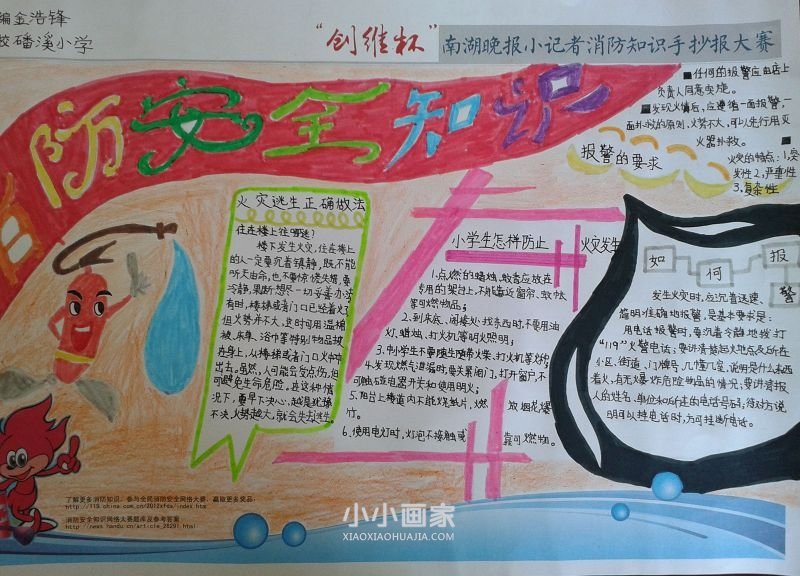 编金浩锋
校磻溪小学
"创维杯"南湖晚报小记者消防知识手抄报大赛
防安全知识
■任何的报警应由店上
负责人同意实施。
■发现火情后,应遵循一面报警,一
面扑救的原则,火势不大,可以先行用灭
火器扑救。
报警的要求
火灾的特点:1,突
发性2,严重性
3,复杂性
火灾逃生正确做法
住在楼上往哪逃?
楼下发生火灾,住在楼上
的人一定要沉着镇静,既不能
听天由命,也不要惊慌失措,要
冷静,果断想尽一切妥善办法
有时,楼梯或者门口已经着火
但火势并不大,这时可用湿棉
被、床单、浴巾等特别物品披
在身上,从楼梯或者门口火中冲
出去。虽然,人可能会受点伤,但
可避免生命危险。在这种情
况下,要早下决心,越是犹豫
不决,火势越大,就会失去逃生。
小学生怎样防止火灾发生
1.点燃的蜡烛、蚊香应放在
专用的架台上,不能靠近窗帘、蚊帐
等可燃物品;
2.到床底、阁楼处找东西时,不要用油
灯、蜡烛、打火机等明火照明;
3.中小学生不要随身带火柴、打火机等火种;
4.发现燃气泄漏时,要关紧阀门,打开窗户,不
可触动电器开关和使用明火;
5.阳台上楼道内不能烧纸片,燃放烟花爆
竹。
6.使用电灯时,灯泡不接触或靠可燃物。
如何报警
发生火灾时,应沉着迅速、
简明准确地报警,是基本要求是:
用电话报警时,要沉着令静地拨打
"119"火警电话;要讲清着起火地点及所在
小区、街道、门牌号、几幢几室,说明是什么东西
着火,有无爆炸危险物品的情况;要讲清报
人的姓名、单位和所在的电话号码;待对方说
明可以挂电话时,方可挂断电话。
了解更多消防知识,参与全民消防安全网络大赛,赢取更多奖品:
http://119.china.com.cn/2012xfzs/index.htm
消防安全知识网络大赛题库及参考答案:
http://news.handu.cn/article_26291.html
小小画家
XIAOXIAOHUAJIA.COM